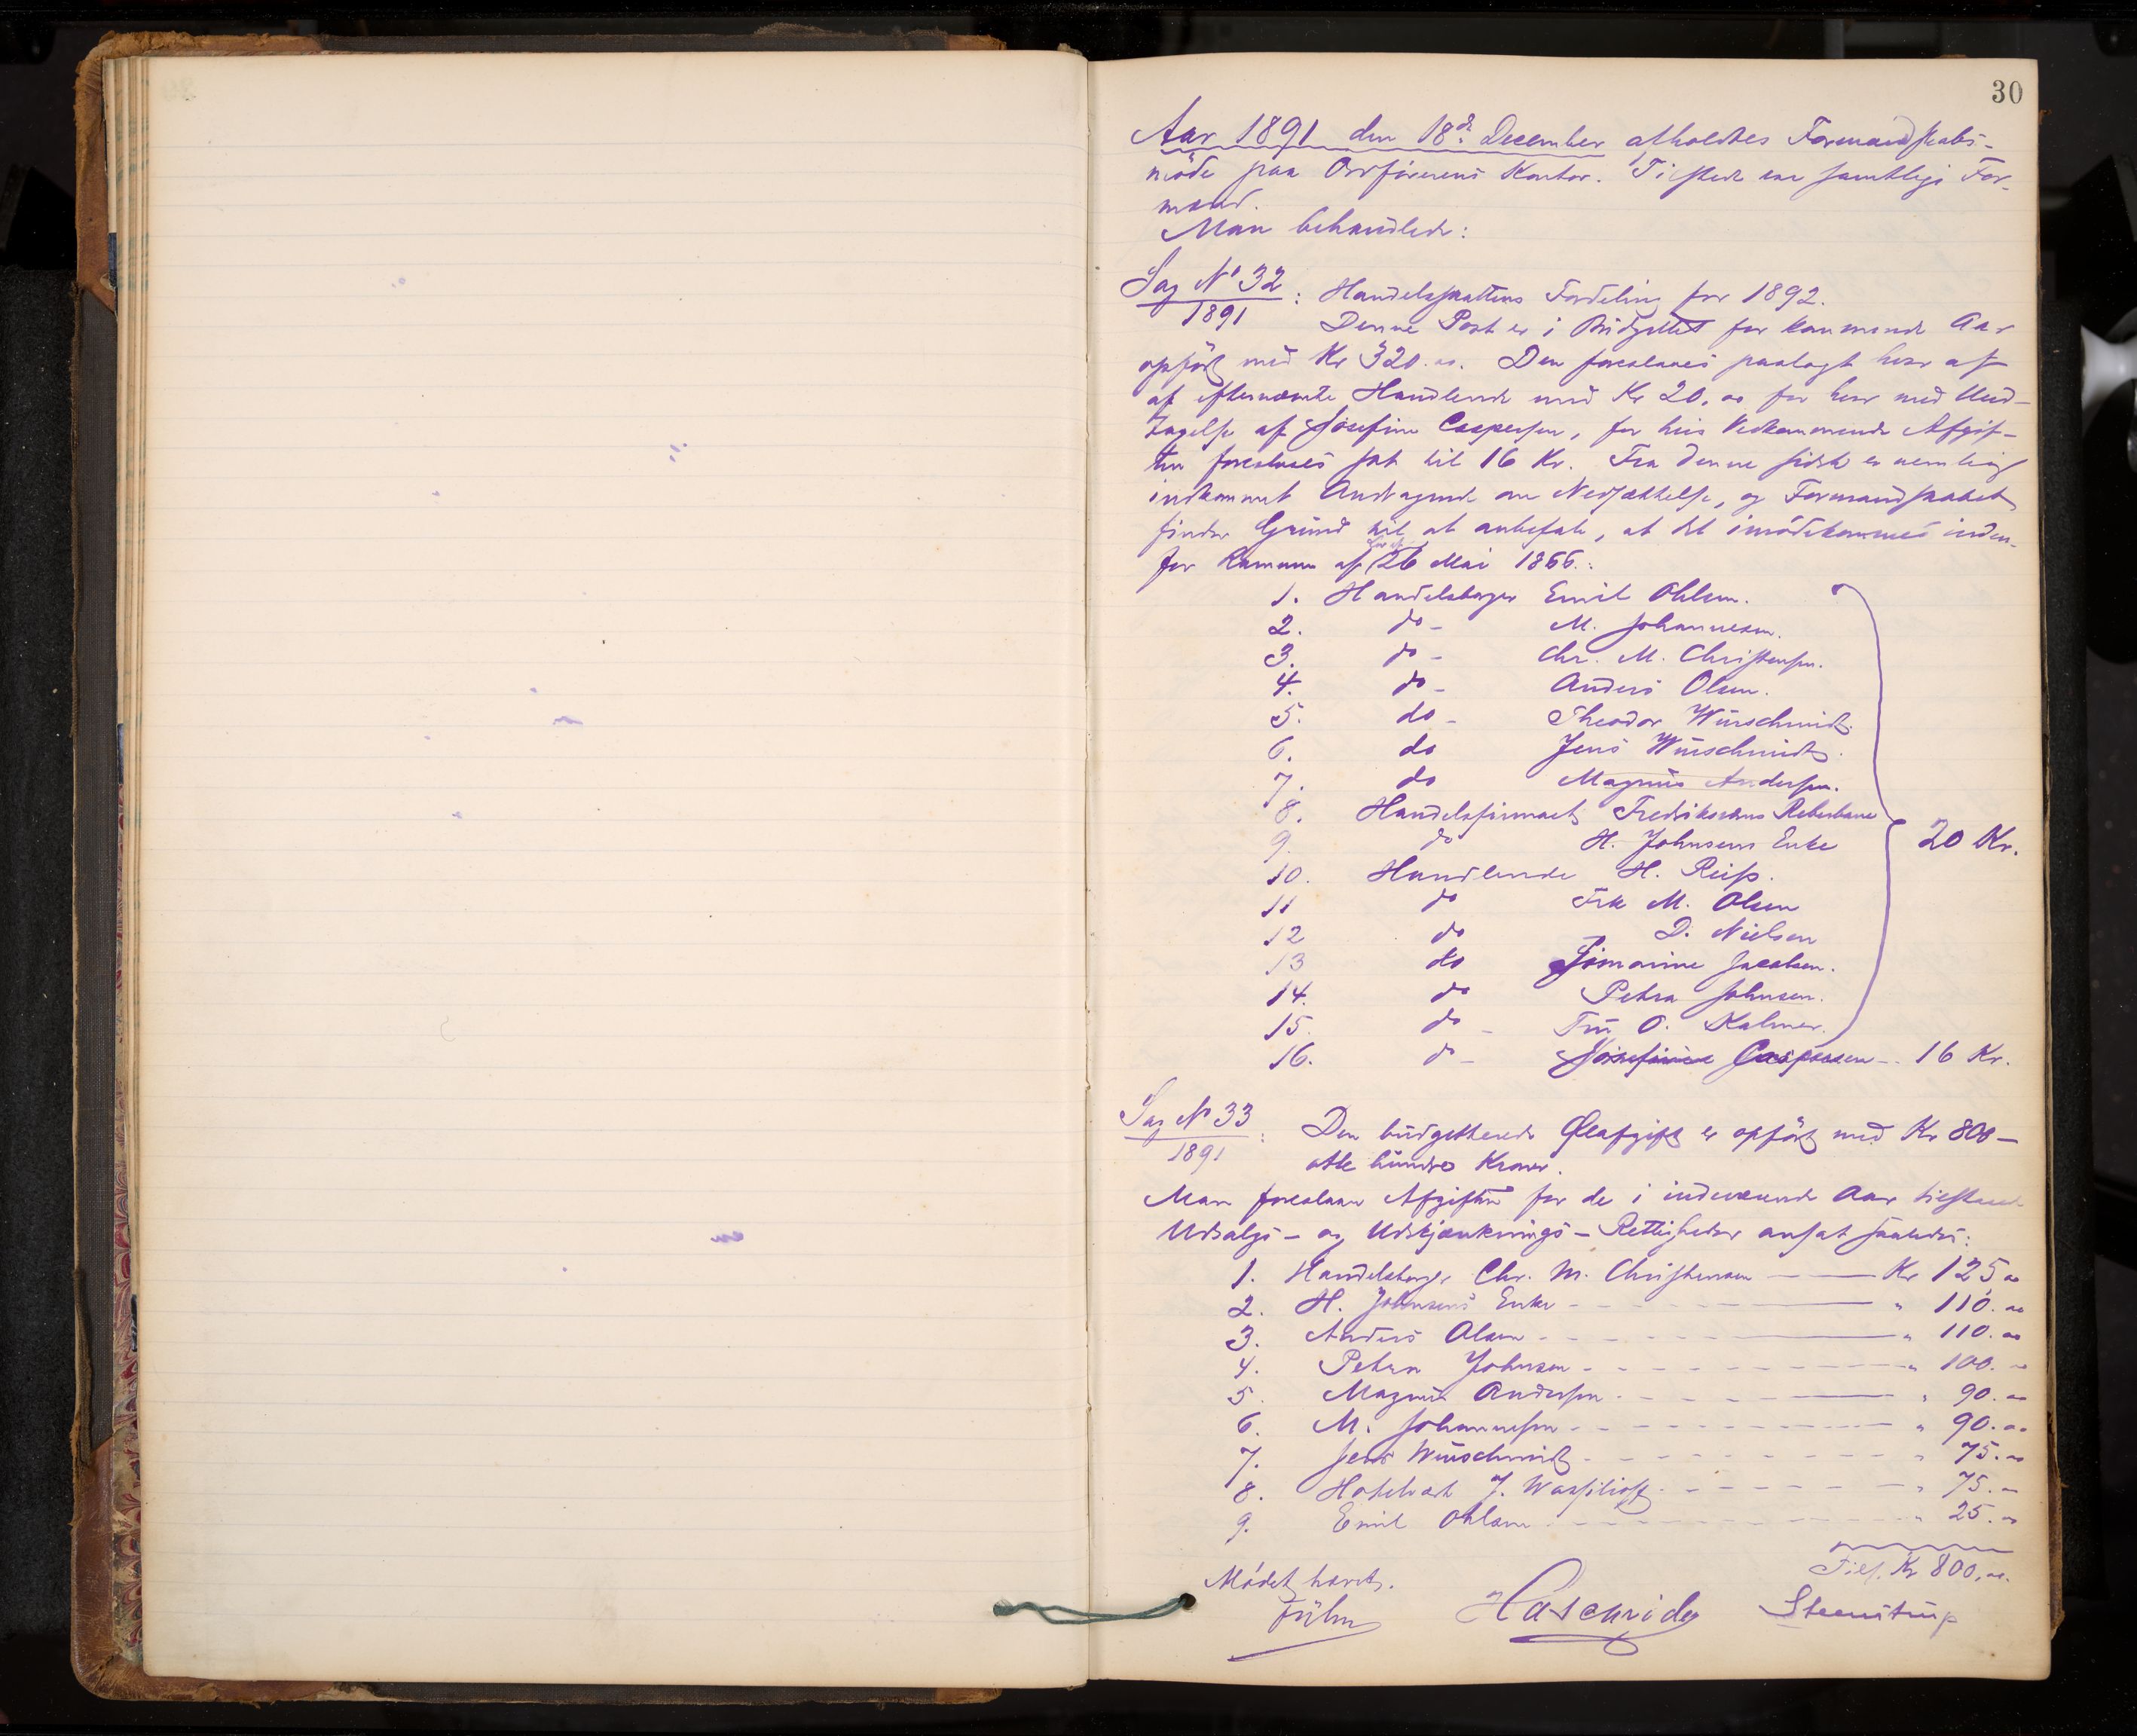 30
Aar 1891 den 18de December afholdtes Formandskabs-
möde paa Ordförerens Kontor. Tilstede var samtlige For-
mænd.
Man behandlede:
Sag No 32
1891
: Handelsskattens Fordeling for 1892.
Denne Post er i Budgettet for kommende Aar
opfört med Kr 320.00. Den foreslaaes paalagt hver af
af efternævnte Handlende med Kr 20.00 for hver med Und-
tagelse af Josefine Caspersen, for hvis Vedkommende Afgif-
ten foreslaaes sat til 16 Kr. Fra denne sidste er nemlig
indkommet Andragende om Nedsættelse, og Formandskabet
finder Grund til at anbefale, at det imödekommes inden-
for Rammen af Lov af 26 Mai 1866.:
1. Handelsborger Emil Ohlsen.
2. do - M. Johannesen.
3. do - Chr. M. Christensen.
4. do - Anders Olsen.
5. do - Theodor Würschmidt.
6. do Jens Würschmidt.
7. do Magnus Andersen.
8. Handelsfirmaet Fredriksværns Reberbane
9. do H. Johnsens Enke 20 Kr.
10. Handlende H. Reiss.
11 do Frk M. Olsen
12 do D. Nielsen
13 do Jacobsen.
14. do Petra Johnsen.
15. do - Fru O. Kalmer.
16. do - Josefine Caspersen - 16 Kr.
Sag No 33
1891
: Den budgetterede Ölafgift er opfört med Kr 800 -
otte hundre Kroner.
Man foreslaar Afgiften for de i indeværende Aar tilstaaede
Udsalgs- og Udskjænknings-Rettigheder ansat saaledes:
1. Handelsborger Chr. M. Christensen Kr 125.00
2. H. Johnsens Enke " 110.00
3. Anders Olsen " 110.00
4. Petra Johnsen " 100.00
5. Magnus Andersen " 90.00
6. M. Johannesen " 90.00
7. Jens Würschmidt " 75.00
8. Hotelvært J. Wassilioff " 75.00
9. Emil Ohlsen " 25.00
Tils. Kr 800.00.
Mödet hævet.
Steenstrup